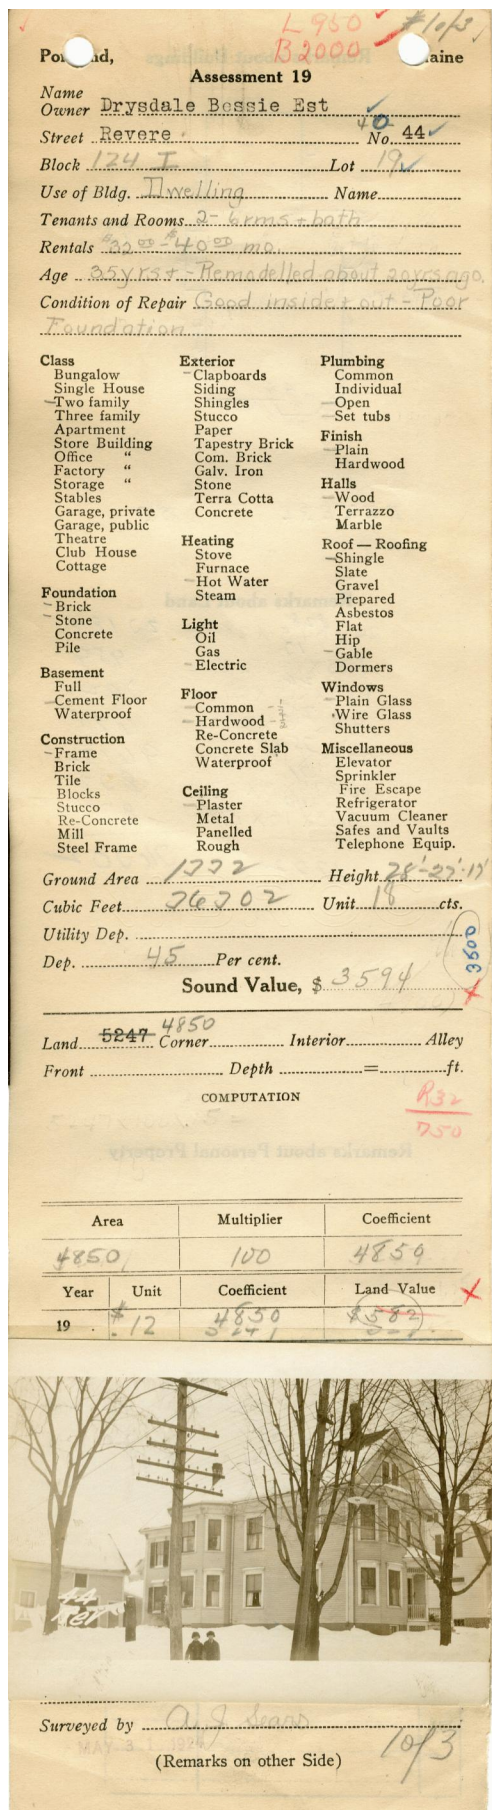 L 950 # 1 of 3
B 2000
Portland, Maine
Assessment 19
Name
Owner Drysdale Bessie Est
40
Street Revere No. 44
Block 124 I Lot 19
Use of Bldg. Dwelling Name
Tenants and Rooms 2- 6 rms + bath
Rentals $32.00 - $40.00 mo.
Age 35 yrs + - Remodelled about 20 yrs ago.
Condition of Repair Good inside + out - Poor
Foundation
Class
Bungalow
Single House
Two family
Three family
Apartment
Store Building
Office "
Factory "
Storage "
Stables
Garage, private
Garage, public
Theatre
Club House
Cottage
Foundation
Brick
Stone
Concrete
Pile
Basement
Full
Cement Floor
Waterproof
Construction
Frame
Brick
Tile
Blocks
Stucco
Re-Concrete
Mill
Steel Frame
Exterior
Clapboards
Siding
Shingles
Stucco
Paper
Tapestry Brick
Com. Brick
Galv. Iron
Stone
Terra Cotta
Concrete
Heating
Stove
Furnace
Hot Water
Steam
Light
Oil
Gas
Electric
Floor
Common
Hardwood
Re-Concrete
Concrete Slab
Waterproof
Ceiling
Plaster
Metal
Panelled
Rough
Plumbing
Common
Individual
Open
Set tubs
Finish
Plain
Hardwood
Halls
Wood
Terrazzo
Marble
Roof — Roofing
Shingle
Slate
Gravel
Prepared
Asbestos
Flat
Hip
Gable
Dormers
Windows
Plain Glass
Wire Glass
Shutters
Miscellaneous
Elevator
Sprinkler
Fire Escape
Refrigerator
Vacuum Cleaner
Safes and Vaults
Telephone Equip.
Ground Area Height 28'-27'-17'
Cubic Feet 36302 Unit 18 cts.
Utility Dep.
Dep. 45 Per cent.
3600
Sound Value, $ 3594
4850
Land 5247 Corner Interior Alley
Front Depth = ft.
COMPUTATION
R32
750
Area Multiplier Coefficient
4850 100 4850
Year Unit Coefficient Land Value
19 $.12 4850 $582
44
Rev
Surveyed by A. J. Sears
MAY 31 1924
(Remarks on other Side)
1 of 3